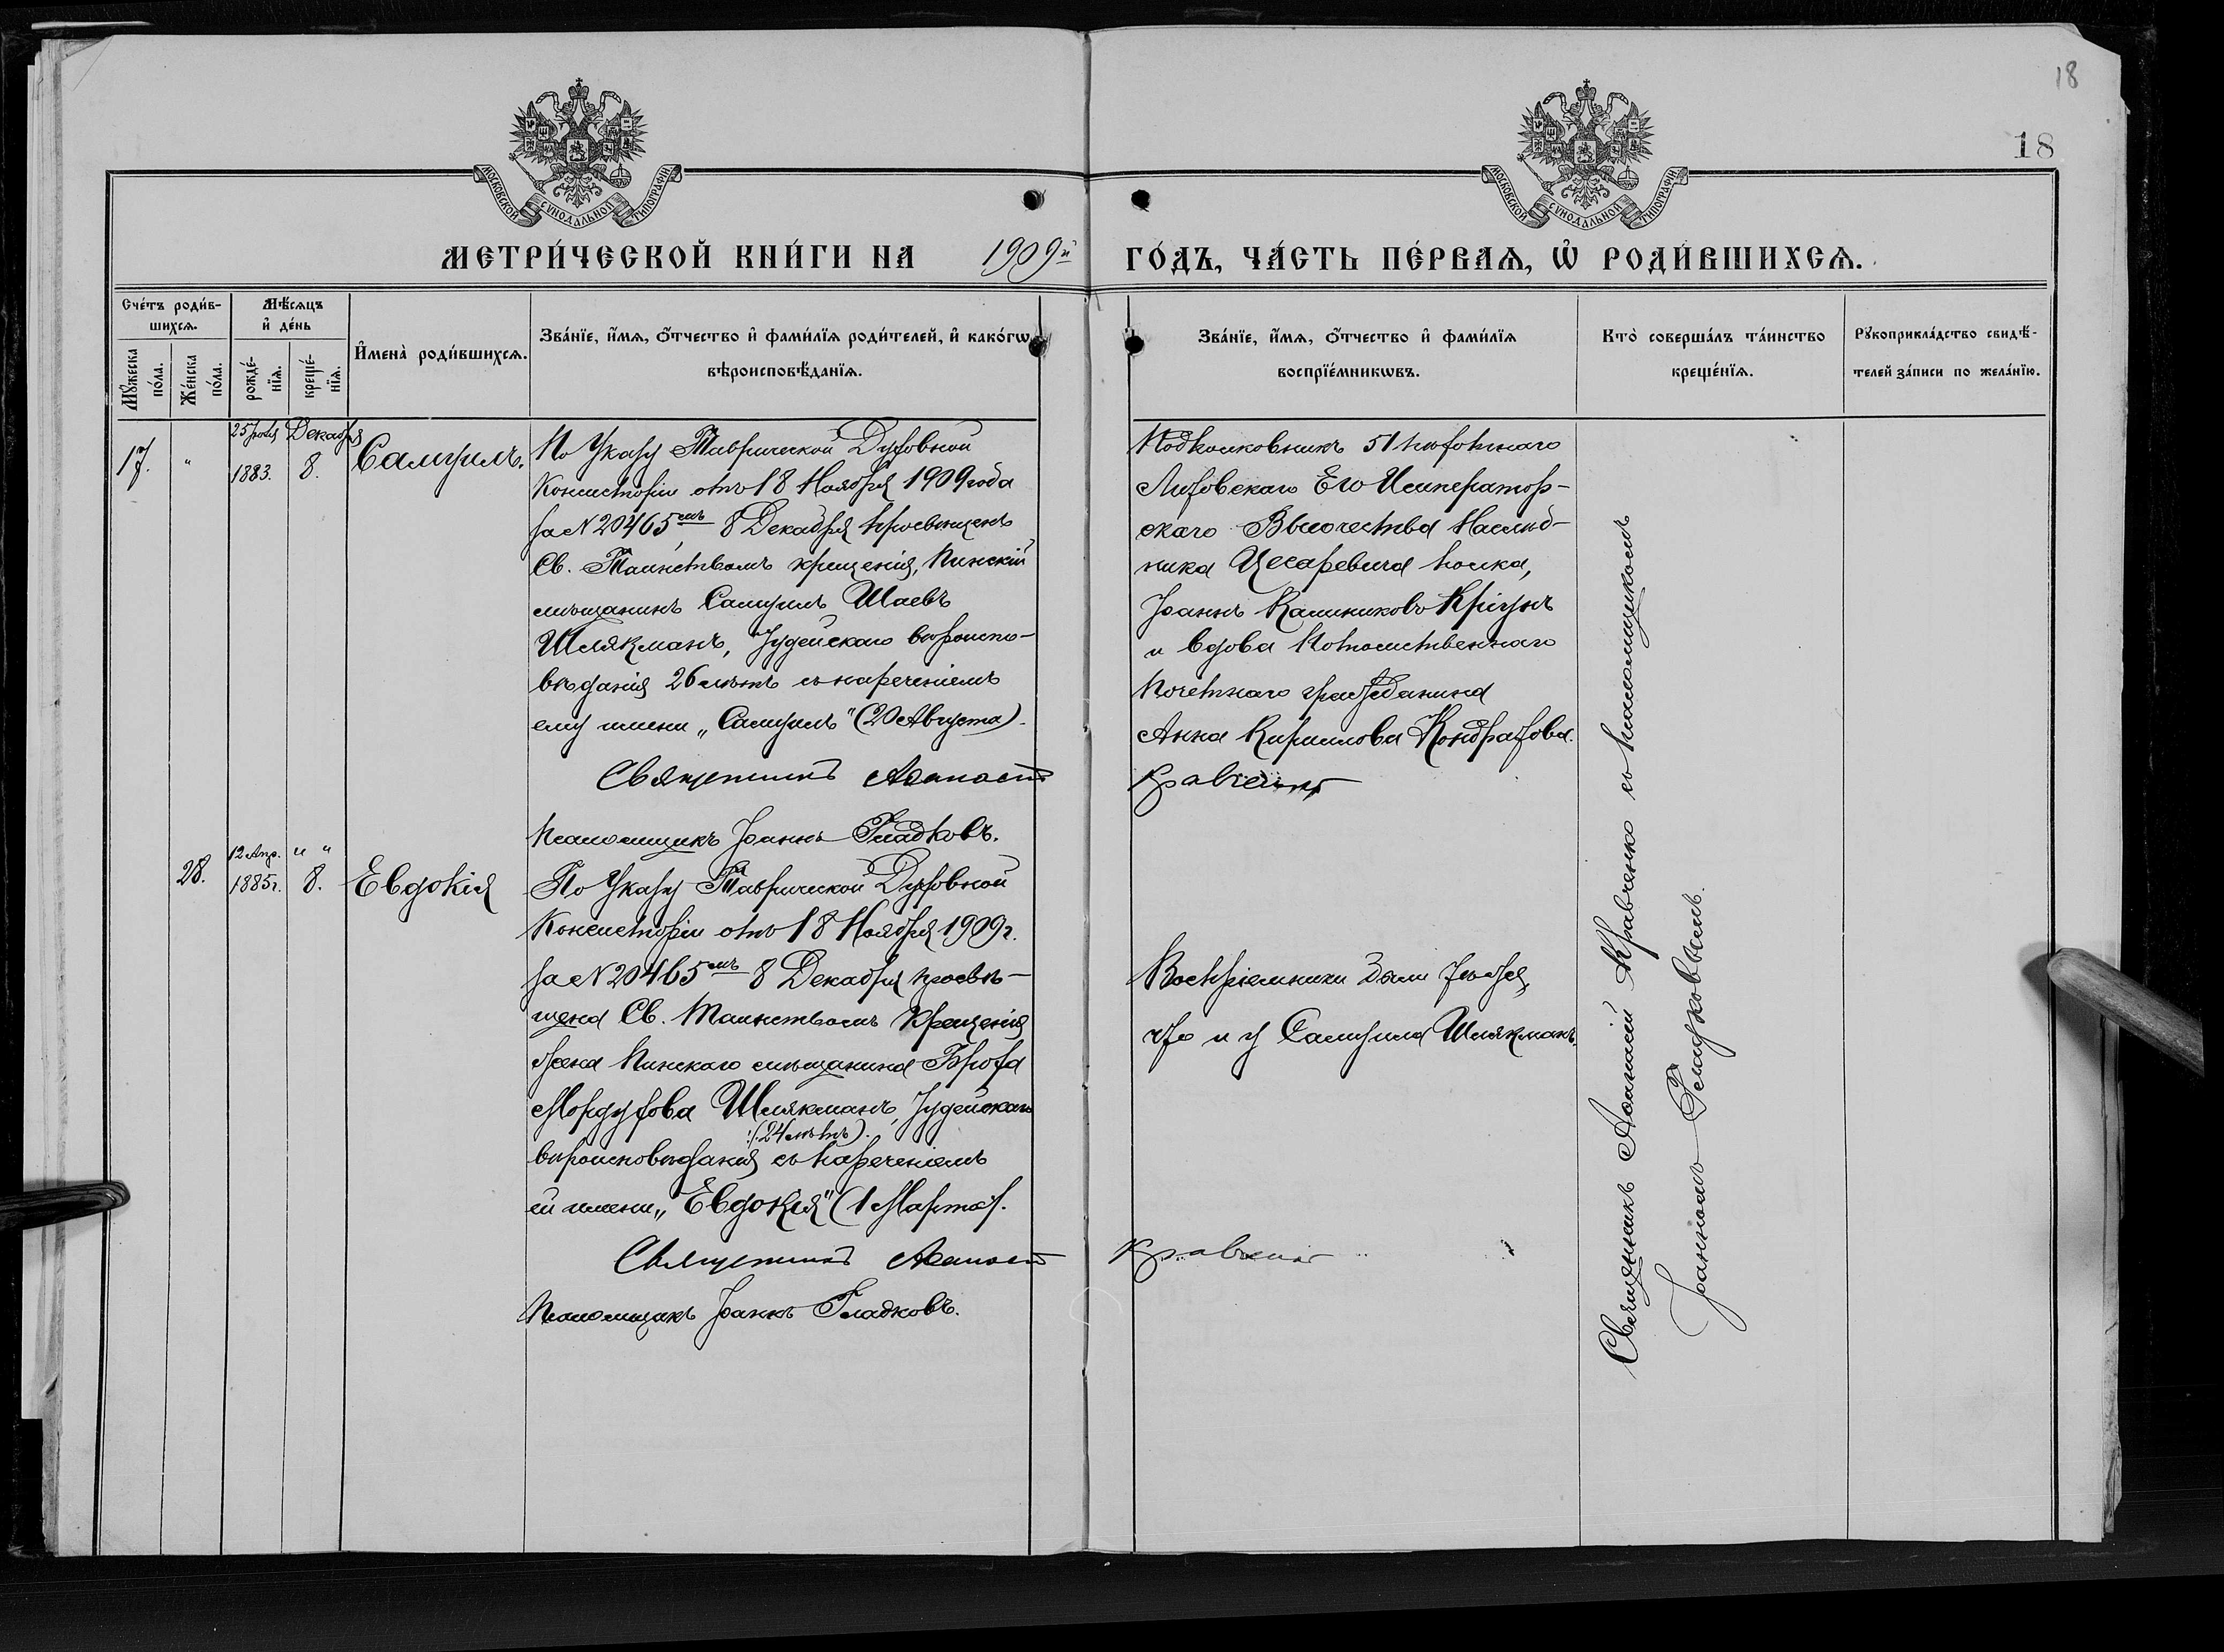 18
18
МОСКОВСКОЙ СУНОДАЛЬНОЙ ТИПОГРАФІИ
МОСКОВСКОЙ СУНОДАЛЬНОЙ ТИПОГРАФІИ
МЕТРИ́ЧЕСКОЙ КНИ́ГИ НА 1909й ГО́ДЪ, ЧА́СТЬ ПЕ́РВАѦ, Ѡ҆ РОДИ́ВШИХСѦ.
Сче́тъ роди́в-
шихсѧ.
Мꙋ́жеска
по́ла.
Же́нска
по́ла.
Мѣ́сѧцъ
и҆ де́нь
рожде́-
нїѧ.
креще́-
нїѧ.
И҆мена̀ роди́вшихсѧ.
Зва́нїе, и҆́мѧ, ѻ҆́тчество и҆ фами́лїѧ роди́телей, и҆ како́гѡ
вѣроисповѣ́данїѧ.
Зва́нїе, и҆́мѧ, ѻ҆́тчество и҆ фами́лїѧ
воспрїе́мникѡвъ.
Кто̀ соверша́лъ та́инство
креще́нїѧ.
Рꙋкоприкла́дство свидѣ́-
телей за́писи по жела́нїю.
17.
"
25
1883.
Декабря
8.
Самуилъ.
По Указу Таврической Духовной
Консисторіи отъ 18 Ноября 1909 года
за N 20465емъ 8 Декабря просвещенъ
Св. Таинствомъ крещенія, Пинскій
мѣщанинъ Самуилъ Шаевъ
Шлякманъ, Іудейскаго вѣроиспо-
вѣданія 26 лѣтъ съ нареченіемъ
ему имени „Самуилъ" (20 Августа).
Священникъ Аѳанасій Кравченко
Псаломщикъ Іоаннъ Гладковъ.
Подполковникъ 51 пѣхотнаго
Литовскаго Его Император-
скаго Высочества Наслѣд-
ника Цесаревича полка,
Іоаннъ Калиниковъ Кригунъ
и вдова Потомственнаго
Почетнаго гражданина
Анна Кириллова Кондратова.
28.
12 Апр.
1885г.
" "
8.
Евдокія
По Указу Таврической Духовной
Консисторіи отъ 18 Ноября 1909г.
за N 20465емъ 8 Декабря просвѣ-
щена Св. Таинствомъ Крещенія
жена Пинскаго мѣщанина Броха
Мордухова Шлякманъ, Іудейскаго
(24 лѣтъ).
вѣроисповѣданія съ нареченіемъ
ей имени „Евдокія" (1 Марта).
Священникъ Аѳанасій Кравченко
Псаломщикъ Іоаннъ Гладковъ.
Воспріемники были тѣ же,
что и у Самуила Шлякманъ.
Священникъ Аѳанасій Кравченко съ псаломщикомъ
Іоанномъ Гладковымъ.